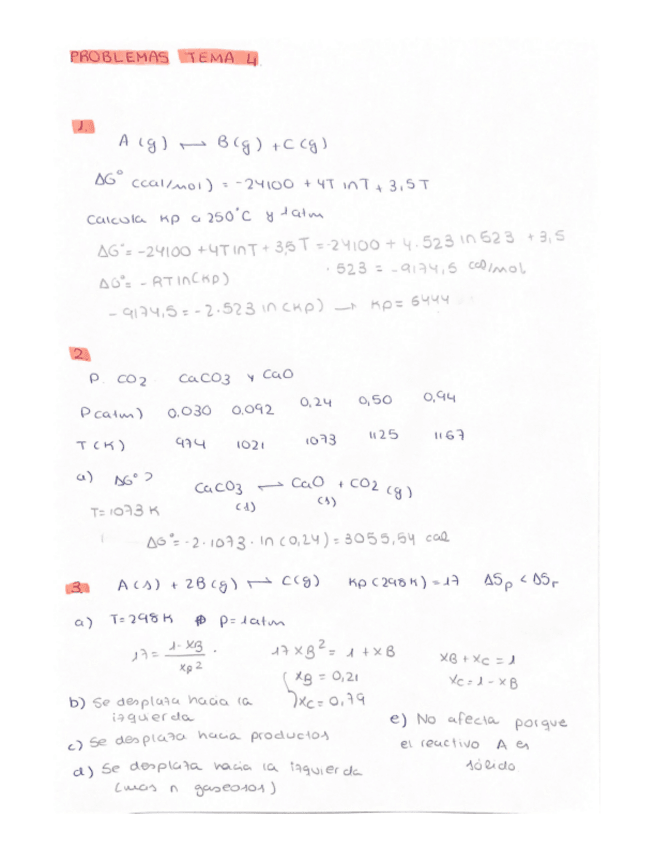 PROBLEMAS TEMA 4
1.
A (g) ⇌ B(g) + C(g)
ΔG° (cal/mol) = -24100 + 4T ln T + 3,5 T
Calcula Kp a 250°C y 1atm
ΔG°= -24100 + 4T ln T + 3,5 T = -24100 + 4 · 523 ln 523 + 3,5
· 523 = -9174,5 cal/mol
ΔG°= - RT ln(Kp)
- 9174,5 = -2 · 523 ln (Kp) → Kp = 6444
2.
P. CO2 CaCO3 y CaO
P(atm) 0.030 0.092 0,24 0,50 0,94
T (K) 974 1021 1073 1125 1167
a) ΔG° ? CaCO3 (s) ⇌ CaO (s) + CO2 (g)
T= 1073 K
ΔG°= -2 · 1073 · ln (0,24) = 3055,54 cal
3. A(s) + 2B(g) ⇌ C(g) Kp (298K) = 17 ΔSp < ΔSr
a) T= 298K P= 1atm
17 = 1-XB / XB2 · 17 XB2 = 1 + XB XB + XC = 1
XB = 0,21 XC = 1 - XB
XC = 0,79
b) Se desplaza hacia la
izquierda
c) Se desplaza hacia productos
d) Se desplaza hacia la izquierda
(mas n gaseosos)
e) No afecta porque
el reactivo A es
sólido